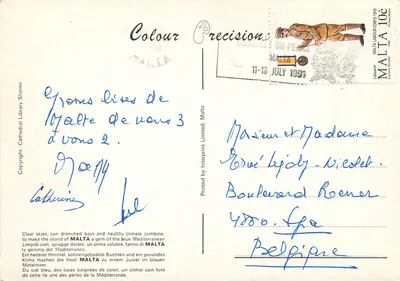 Colour Precision
MALTA 10c
MALTA LABOUR CORPS 1915
MALTA
11-13 JULY 1991
Copyright: Cathedral Library Storms
Printed by Interprint Limited, Malta
Grosses bises de
Malte de nous 3
à vous 2.
Catherine
Monsieur et Madame
Hervé Lejoly-Nicolet
Boulevard Renier
4880 Spa
Belgique
Clear skies, sun drenched bays and healthy climate combine,
to make the island of MALTA a gem of the blue Mediterranean
Limpidi cieli, spiagge dorate, un clima salubre, fanno di MALTA
la gemma del Mediterraneo.
Ein heiterer Himmel, sonnengebadete Buchten und ein gesundes
Klima machen die Insel MALTA zu einem Juwel im blauen
Mittelmeer.
Du ciel bleu, des baies baignées de soleil, un climat sain font
de cette île une des perles de la Méditerranée.